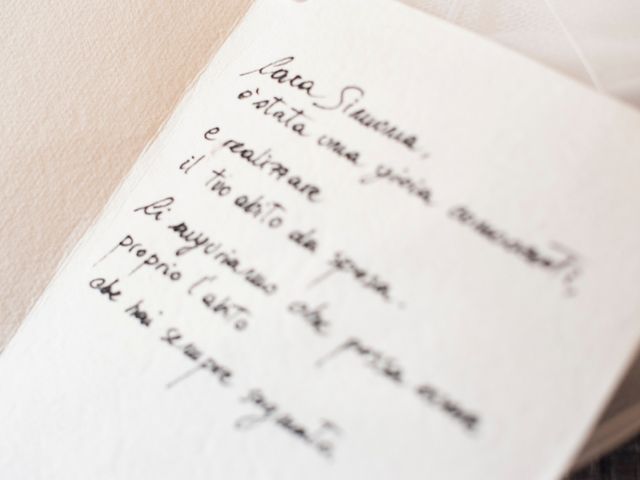 Cara Simona,
è stata una gioia conoscerti,
e realizzare
il tuo abito da sposa.
Ci auguriamo che possa essere
proprio l'abito
che hai sempre sognato